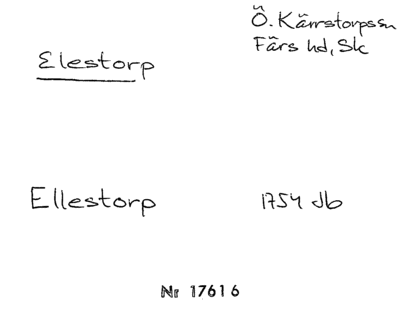 Ö. Kärrstorpssn
Färs hd, Sk
Elestorp
Ellestorp 1754 db
Nr 17616